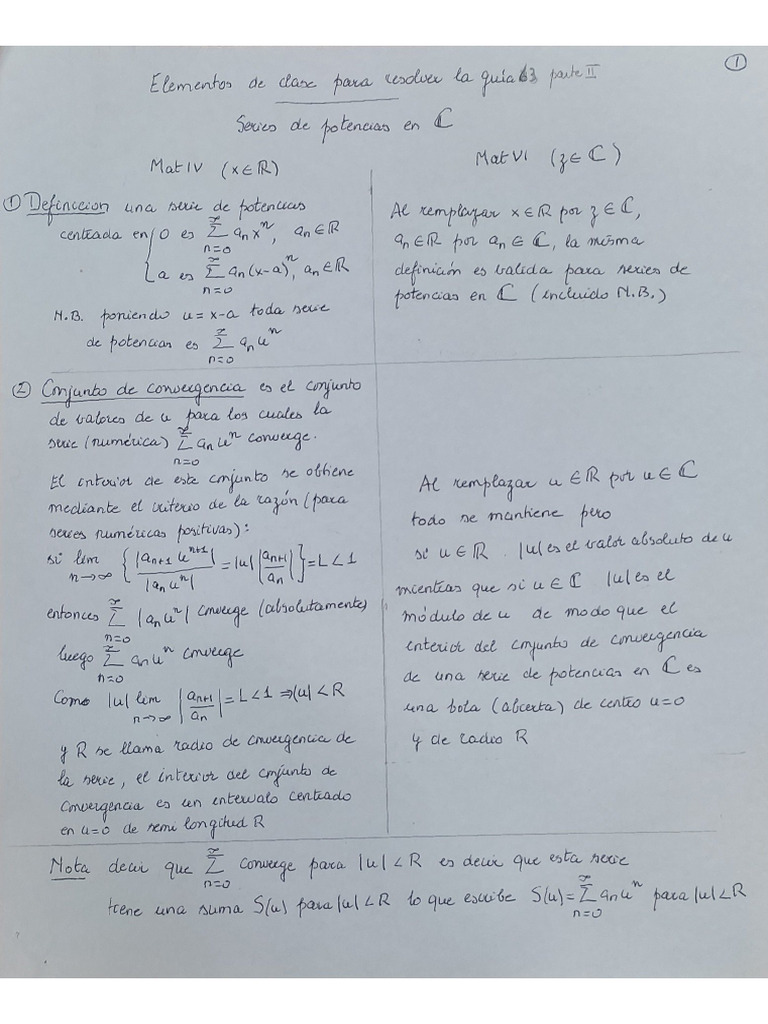 ①
Elementos de clase para resolver la guía 3 parte II
Series de potencias en ℂ
Mat IV (x ∈ ℝ)
Mat VI (z ∈ ℂ)
① Definiccion una serie de potencias
centrada en { 0 es ∑_{n=0}^{∞} a_n x^n, a_n ∈ ℝ
{ a es ∑_{n=0}^{∞} a_n (x-a)^n, a_n ∈ ℝ
N.B. poniendo u = x-a toda serie
de potencias es ∑_{n=0}^{∞} a_n u^n
Al remplazar x ∈ ℝ por z ∈ ℂ,
a_n ∈ ℝ por a_n ∈ ℂ, la misma
definición es valida para series de
potencias en ℂ (incluido N.B.)
② Conjunto de convergencia es el conjunto
de valores de u para los cuales la
serie (numérica) ∑_{n=0}^{∞} a_n u^n converge.
El interior de este conjunto se obtiene
mediante el criterio de la razón (para
series numéricas positivas):
si lim_{n→∞} { |a_{n+1} u^{n+1}| / |a_n u^n| = |u| |a_{n+1}/a_n| } = L < 1
entonces ∑_{n=0}^{∞} |a_n u^n| converge (absolutamente)
luego ∑_{n=0}^{∞} a_n u^n converge
Como |u| lim_{n→∞} |a_{n+1}/a_n| = L < 1 ⇒ |u| < R
y R se llama radio de convergencia de
la serie, el interior del conjunto de
convergencia es un intervalo centrado
en u=0 de semi longitud R
Al remplazar u ∈ ℝ por u ∈ ℂ
todo se mantiene pero
si u ∈ ℝ . |u| es el valor absoluto de u
mientras que si u ∈ ℂ |u| es el
módulo de u de modo que el
interior del conjunto de convergencia
de una serie de potencias en ℂ es
una bola (abierta) de centro u=0
y de radio R
Nota decir que ∑_{n=0}^{∞} converge para |u| < R es decir que esta serie
tiene una suma S(u) para |u| < R lo que escribe S(u) = ∑_{n=0}^{∞} a_n u^n para |u| < R